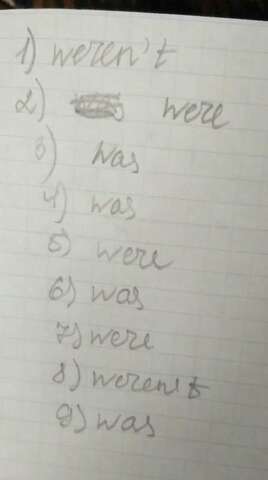 1) weren't
2) were
3) was
4) was
5) were
6) was
7) were
8) weren't
9) was